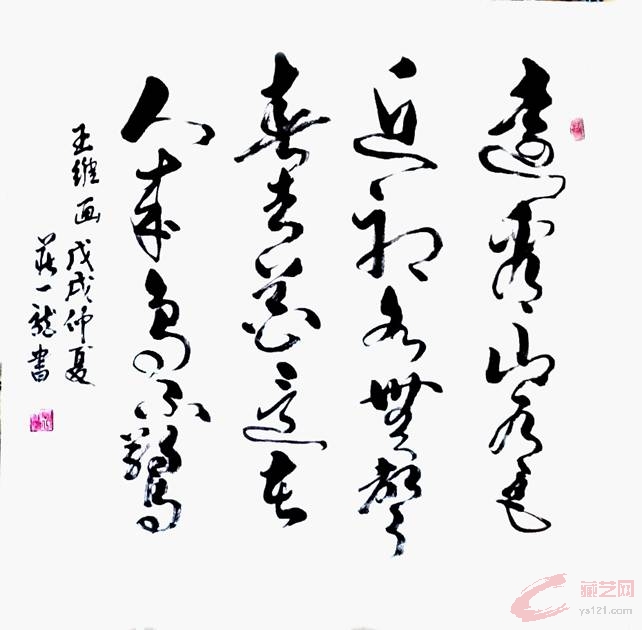 遠看山有色
近聽水無聲
春去花還在
人來鳥不驚
王維画 戊戌仲夏
一龍書
藏艺网
ys121.com